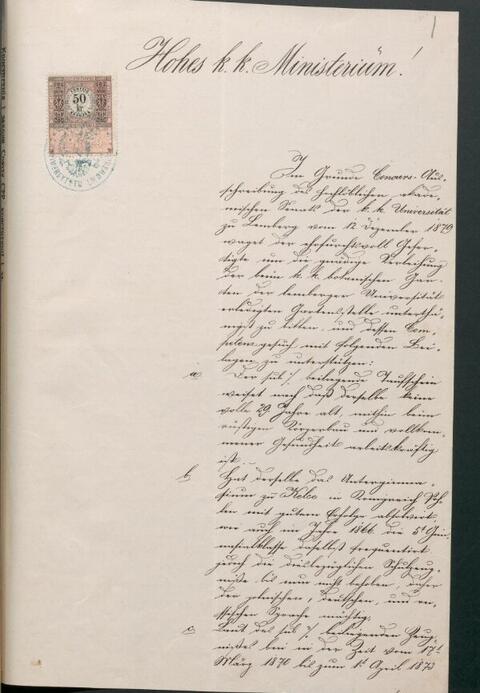 1
Hohes k. k. Ministerium!
50
kr
Im Grunde Concurs-Aus-
schreibung des hochlöblichen akade-
mischen Senats der k. k. Universität
zu Lemberg vom 12 Dezember 1879
waget der ehrfurchtsvoll Gefer-
tigte um die gnädige Verleihung
der beim k. k. botanischen Gar-
ten der lemberger Universität
erledigten Gartenstelle unterthä-
nigst zu bitten, und dessen Com-
petenzgesuch mit folgenden Bei-
lagen zu unterstützen:
a Der sub /. beiliegende Taufschein
weiset nach daß derselbe keine
volle 29 Jahre alt, mithin beim
rüstigen Körperbau und vollkom-
mener Gesundheit arbeitskräftig
ist.
b Hat derselbe das Untergymna-
sium zu Kielce in Königreich Poh-
len mit gutem Erfolge absolvirt
wie auch im Jahre 1866 die 5te Gym-
nasialklasse daselbst frequentirt
die diesbezüglichen Schulzeug-
niße bis nun nicht behoben, daher
der polnischen, deutschen, und ru-
ssischen Sprache mächtig.
c Laut des sub /. beiliegenden Zeug-
nißes bei in der Zeit vom 17t
März 1870 bis zum 1t April 1873